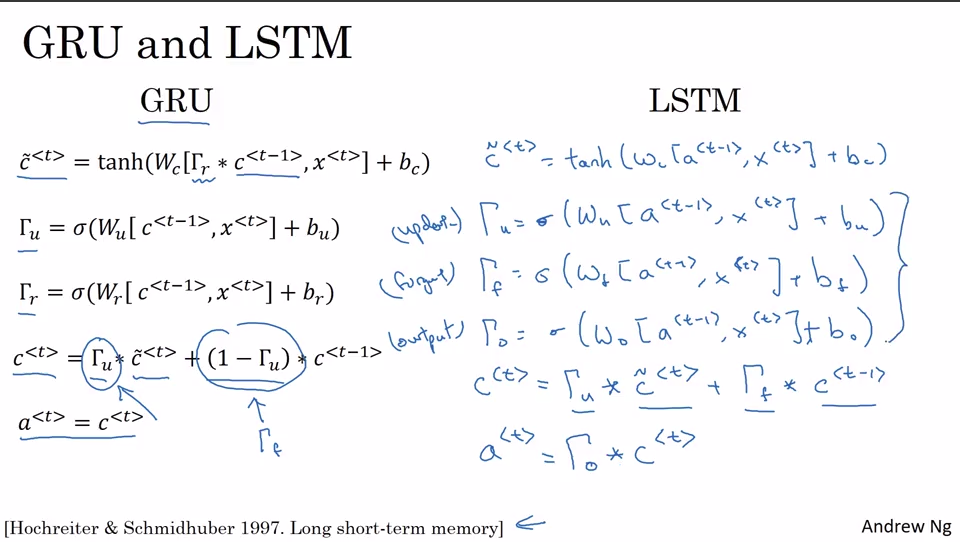 GRU and LSTM
GRU
c̃^<t> = tanh(W_c[Γ_r ∗ c^<t−1>, x^<t>] + b_c)
Γ_u = σ(W_u[ c^<t−1>, x^<t>] + b_u)
Γ_r = σ(W_r[ c^<t−1>, x^<t>] + b_r)
c^<t> = Γ_u ∗ c̃^<t> + (1 − Γ_u) ∗ c^<t−1>
Γ_f
a^<t> = c^<t>
LSTM
c̃^<t> = tanh(W_c[a^<t-1>, x^<t>] + b_c)
(update) Γ_u = σ(W_u[a^<t-1>, x^<t>] + b_u)
(forget) Γ_f = σ(W_f[a^<t-1>, x^<t>] + b_f)
(output) Γ_o = σ(W_o[a^<t-1>, x^<t>] + b_o)
c^<t> = Γ_u * c̃^<t> + Γ_f * c^<t-1>
a^<t> = Γ_o * c^<t>
[Hochreiter & Schmidhuber 1997. Long short-term memory]
Andrew Ng